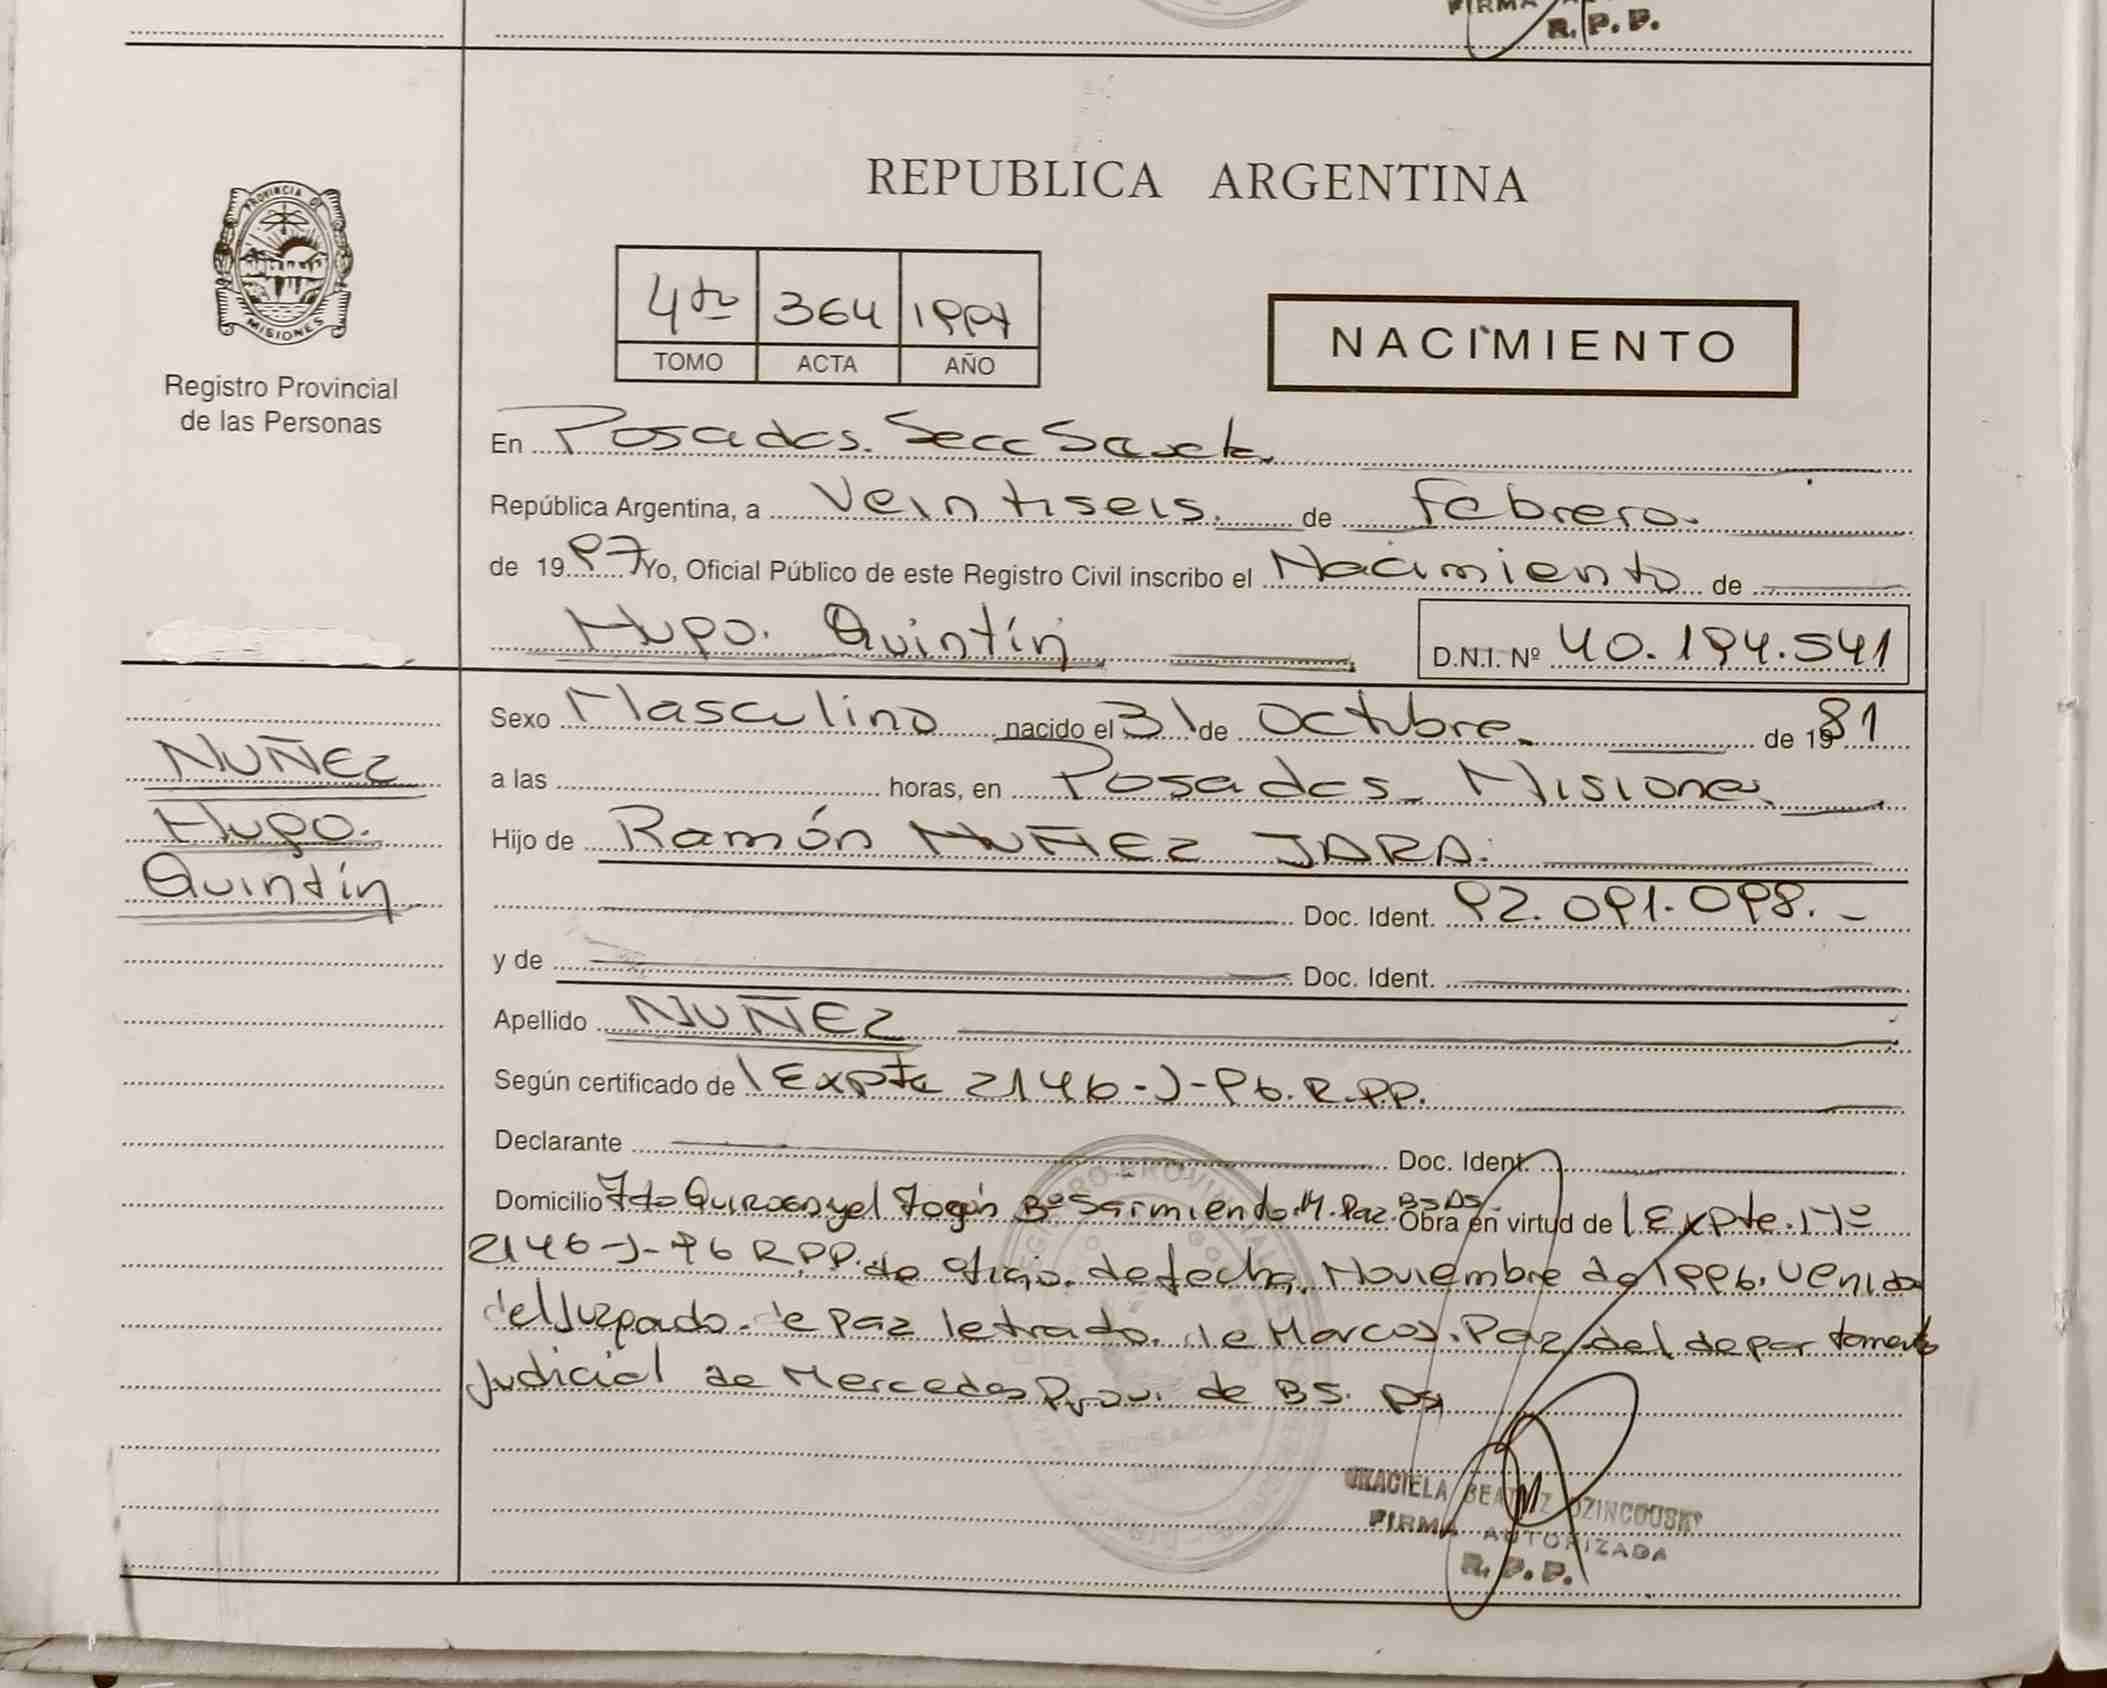 FIRMA
R. P. P.
REPUBLICA ARGENTINA
PROVINCIA DE
MISIONES
Registro Provincial
de las Personas
4to 364 1997
TOMO ACTA AÑO
NACIMIENTO
En Posadas. Secc Sexta.
República Argentina, a Veintiseis. de Febrero.
de 1997 Yo, Oficial Público de este Registro Civil inscribo el Nacimiento de
Hugo. Quintín D.N.I. Nº 40.194.541
Sexo Masculino nacido el 31 de Octubre. de 1981
NUÑEZ
Hugo.
Quintín
a las horas, en Posadas_ Misiones
Hijo de Ramón NUÑEZ JARA.
Doc. Ident. 92.091.098.-
y de Doc. Ident.
Apellido NUÑEZ
Según certificado de l Expte 2146-J-96. R.P.P.
Declarante Doc. Ident.
Domicilio Bº Sarmiento. M. Paz. Bs As. Obra en virtud de l Expte. Nº
2146-J-96 R.P.P. de oficio. de fecha, Noviembre de 1996. venido
del Juzgado. de Paz letrado. de Marcos. Paz, del departamento
Judicial de Mercedes Prov. de BS. As
GRACIELA BEATRIZ
FIRMA AUTORIZADA
R. P. P.